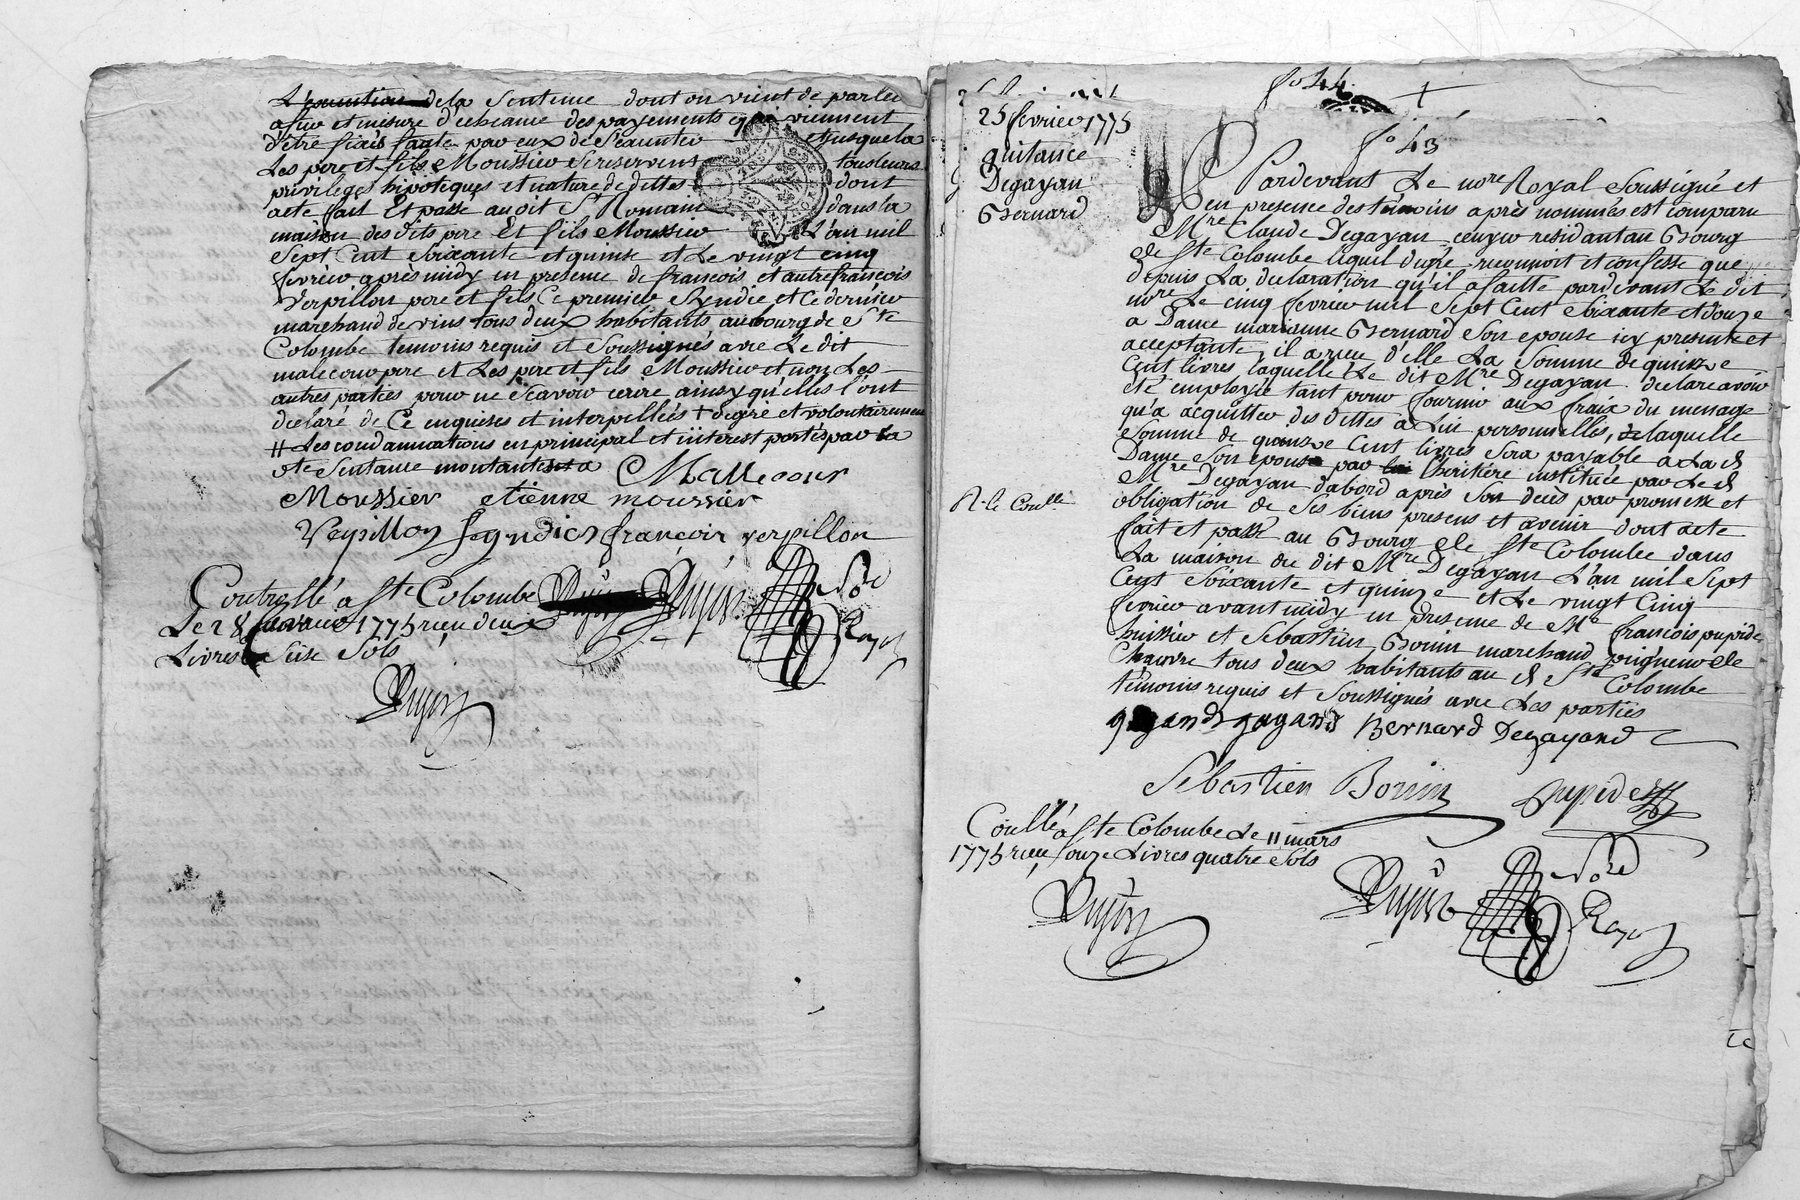 L'execution de la Sentence dont on vient de parler
afur et mesure d'echeance des payements qui viennent
d'etre fixés faute par eux de S'éxecuter et jusque la
Les pere et fils Moussier Se reservent tous leurs
privileges hipoteques et nature de dettes dont
acte fait Et passé audit St Romain dans la
maison des dits pere Et fils Moussier L'an mil
Sept Cent Soixante et quinse et Le vingt cinq
fevrier après midy en presence de francois et autre francois
Verpillon pere et fils Ce premier Syndic et Ce dernier
marchand de vins tous deux habitants au bourg de Ste
Colombe temoins requis et Soussignés avec Le dit
malecour pere et Les pere et fils Moussier et non Les
autres parties pour ne Scavoir ecrire ainsy qu'elles l'ont
declaré de Ce enquises et interpellées + de gré et volontairement
# Les condamnations en principal et interest portés par la
dte Sentance montantes a Mallecour
Moussier etienne moussier
Verpillon Segndic françois verpillon
Controllé a Ste Colombe
Le 28 fevrier 1775 recu deux
Livres Seise Sols
Nore
Royal
fo 44
25 fevrier 1775
quitance
Degayan
Bernard
fo 43
Pardevant Le nore Royal Soussigné et
en presence des témoins après nommés est comparu
Mre Claude Degayan ecuyer residant au Bourg
de Ste Colombe lequel de gré reconnoit et confesse que
depuis La declaration qu'il a faitte pardevant Le dit
nore Le cinq fevrier mil Sept Cent Soixante et douze
a Dame marianne Bernard Son epouse icy presente et
acceptante, il a recu d'elle La Somme de quinze
Cent livres, laquelle Le dit Mre Degayan declare avoir
eté employée tant pour fournir aux fraix du menage
qu'a acquitter des dettes à Lui personnelles, laquelle
Somme de quinze Cent livres Sera payable a La d
Dame Son epouse par heritiere instituée par Le d
Mre Degayan d'abord après Son decès par promesse et
obligation de Ses biens presens et avenir dont acte
fait et passé au Bourg de Ste Colombe dans
La maison du dit Mre Degayan L'an mil Sept
Cent Soixante et quinze et Le vingt Cinq
fevrier avant midy en presence de Me françois pupide
huissier et Sebastien Bonin marchand peigneur de
Chanvre tous deux habitants au d Ste Colombe
témoins requis et Soussignés avec Les parties
Bernard Degayand
Sebastien Bonin pupide
Coullé a Ste Colombe Le 11 mars
1775 recu onze Livres quatre Sols
Nore
Royal